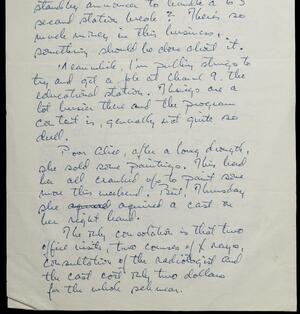 standby announcer to handle a 10
second station break? There's so
much money in this business,
something should be done about it.
Meanwhile, I'm pulling strings to
try and get a job at Channel 9, the
educational station. Things are a
lot busier there and the program
content is, generally not quite so
dull.
Poor Alice, after a long drought,
she sold some paintings. This had
her all cranked up to paint some
more this weekend. But, Thursday
she acquired a cast on
her right hand.
The only consolation is that two
office visits, two courses of X rays,
consultation of the radiologist and
the cast cost only two dollars
for the whole schmear.